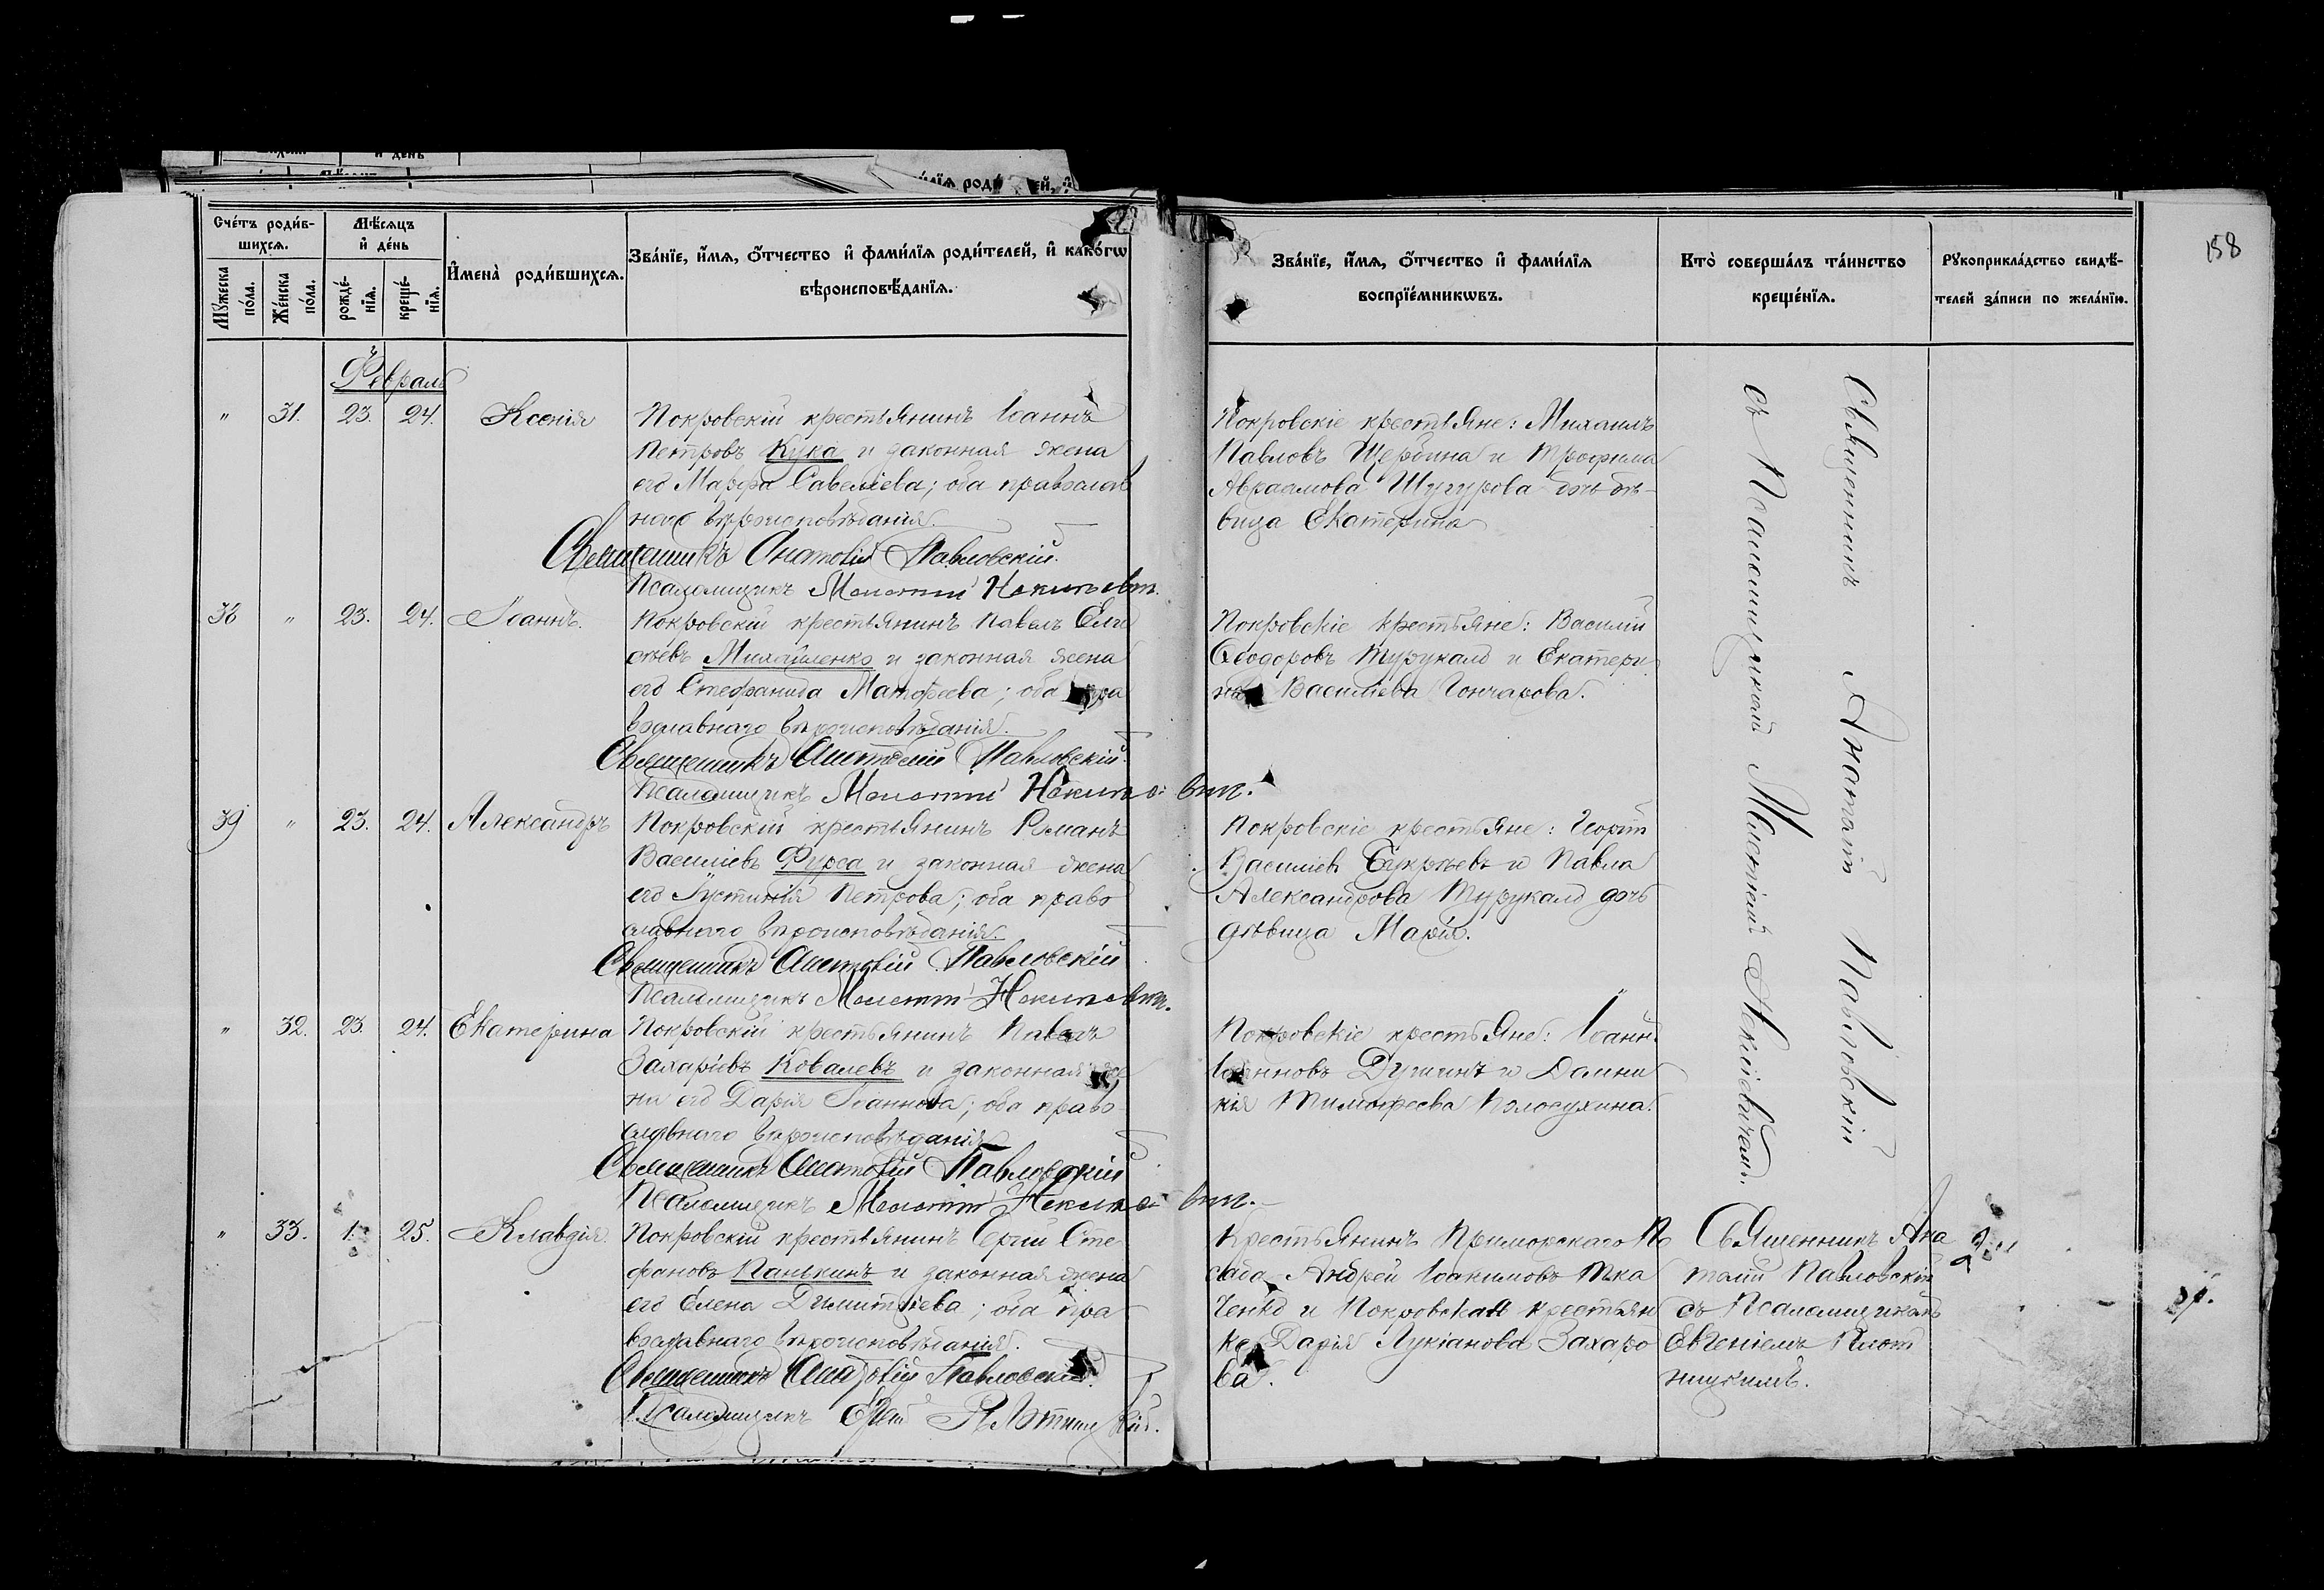 158
Счётъ роди́в-
шихся.
Мѣсяцъ
и день
Мꙋжеска
по́ла.
Же́нска
по́ла.
рожде́-
нїѧ.
креще́-
нїѧ.
Имена̀ роди́вшихсѧ.
Зва́нїе, и́мѧ, ѻ҆́тчество и҆ фами́лїѧ роди́телей, и҆ како́гѡ
вѣроисповѣ́данїѧ.
Зва́нїе, и́мѧ, ѻ҆́тчество и҆ фами́лїѧ
воспрїе́мникѡвъ.
Кто̀ соверша́лъ та́инство
креще́нїѧ.
Рꙋкоприкла́дство свидѣ́-
телей за́писи по жела́нїю.
Февраль
" 31. 23. 24. Ксенія
Покровскій крестьянинъ Іоаннъ
Петровъ Кука и законная жена
его Марфа Савеліева; оба православ
наго вѣроисповѣданія.
Священникъ Анатолій Павловскій.
Псаломщикъ
Покровскіе крестьяне: Михаилъ
Павловъ Щербина и Трофима
Авраамова Шугурова дочь дѣ-
вица Екатерина
Священникъ Анатолій Павловскій
съ Псаломщикомъ
38 " 23. 24. Іоаннъ.
Покровскій крестьянинъ Павелъ Ели
сѣевъ Михайленко и законная жена
его Стефанида Матфеева; оба пра
вославнаго вѣроисповѣданія.
Священникъ Анатолій Павловскій.
Псаломщикъ
Покровскіе крестьяне: Василій
Ѳеодоровъ Турукало и Екатери
на Василіева Гончарова.
39 " 23. 24. Александръ
Покровскій крестьянинъ Романъ
Василіевъ Фурса и законная жена
его Іустинія Петрова; оба право
славнаго вѣроисповѣданія.
Священникъ Анатолій Павловскій
Псаломщикъ
Покровскіе крестьяне: Георгій
Василіевъ и Павла
Александрова Турукало дочь
дѣвица Марія.
" 32. 23. 24. Екатерина
Покровскій крестьянинъ Павелъ
Захаріевъ Ковалевъ и законная же
на его Дарія Іоаннова; оба право
славнаго вѣроисповѣданія
Священникъ Анатолій Павловскій
Псаломщикъ
Покровскіе крестьяне: Іоаннъ
Іоанновъ и Домни
кія Тимофеева Полосухина.
" 33. 1. 25. Клавдія.
Покровскій крестьянинъ Сергій Сте
фановъ Панькинъ и законная жена
его Елена Димитріева; оба пра
вославнаго вѣроисповѣданія.
Священникъ Анатолій Павловскій.
Псаломщикъ
Крестьянинъ Приморскаго По
сада Андрей Іоакимовъ Тка
ченко и Покровская крестьян
ка Дарія Лукіанова Захаро
ва.
Священникъ Ана
толій Павловскій
съ Псаломщикомъ
Евгеніемъ Плот
ницкимъ.